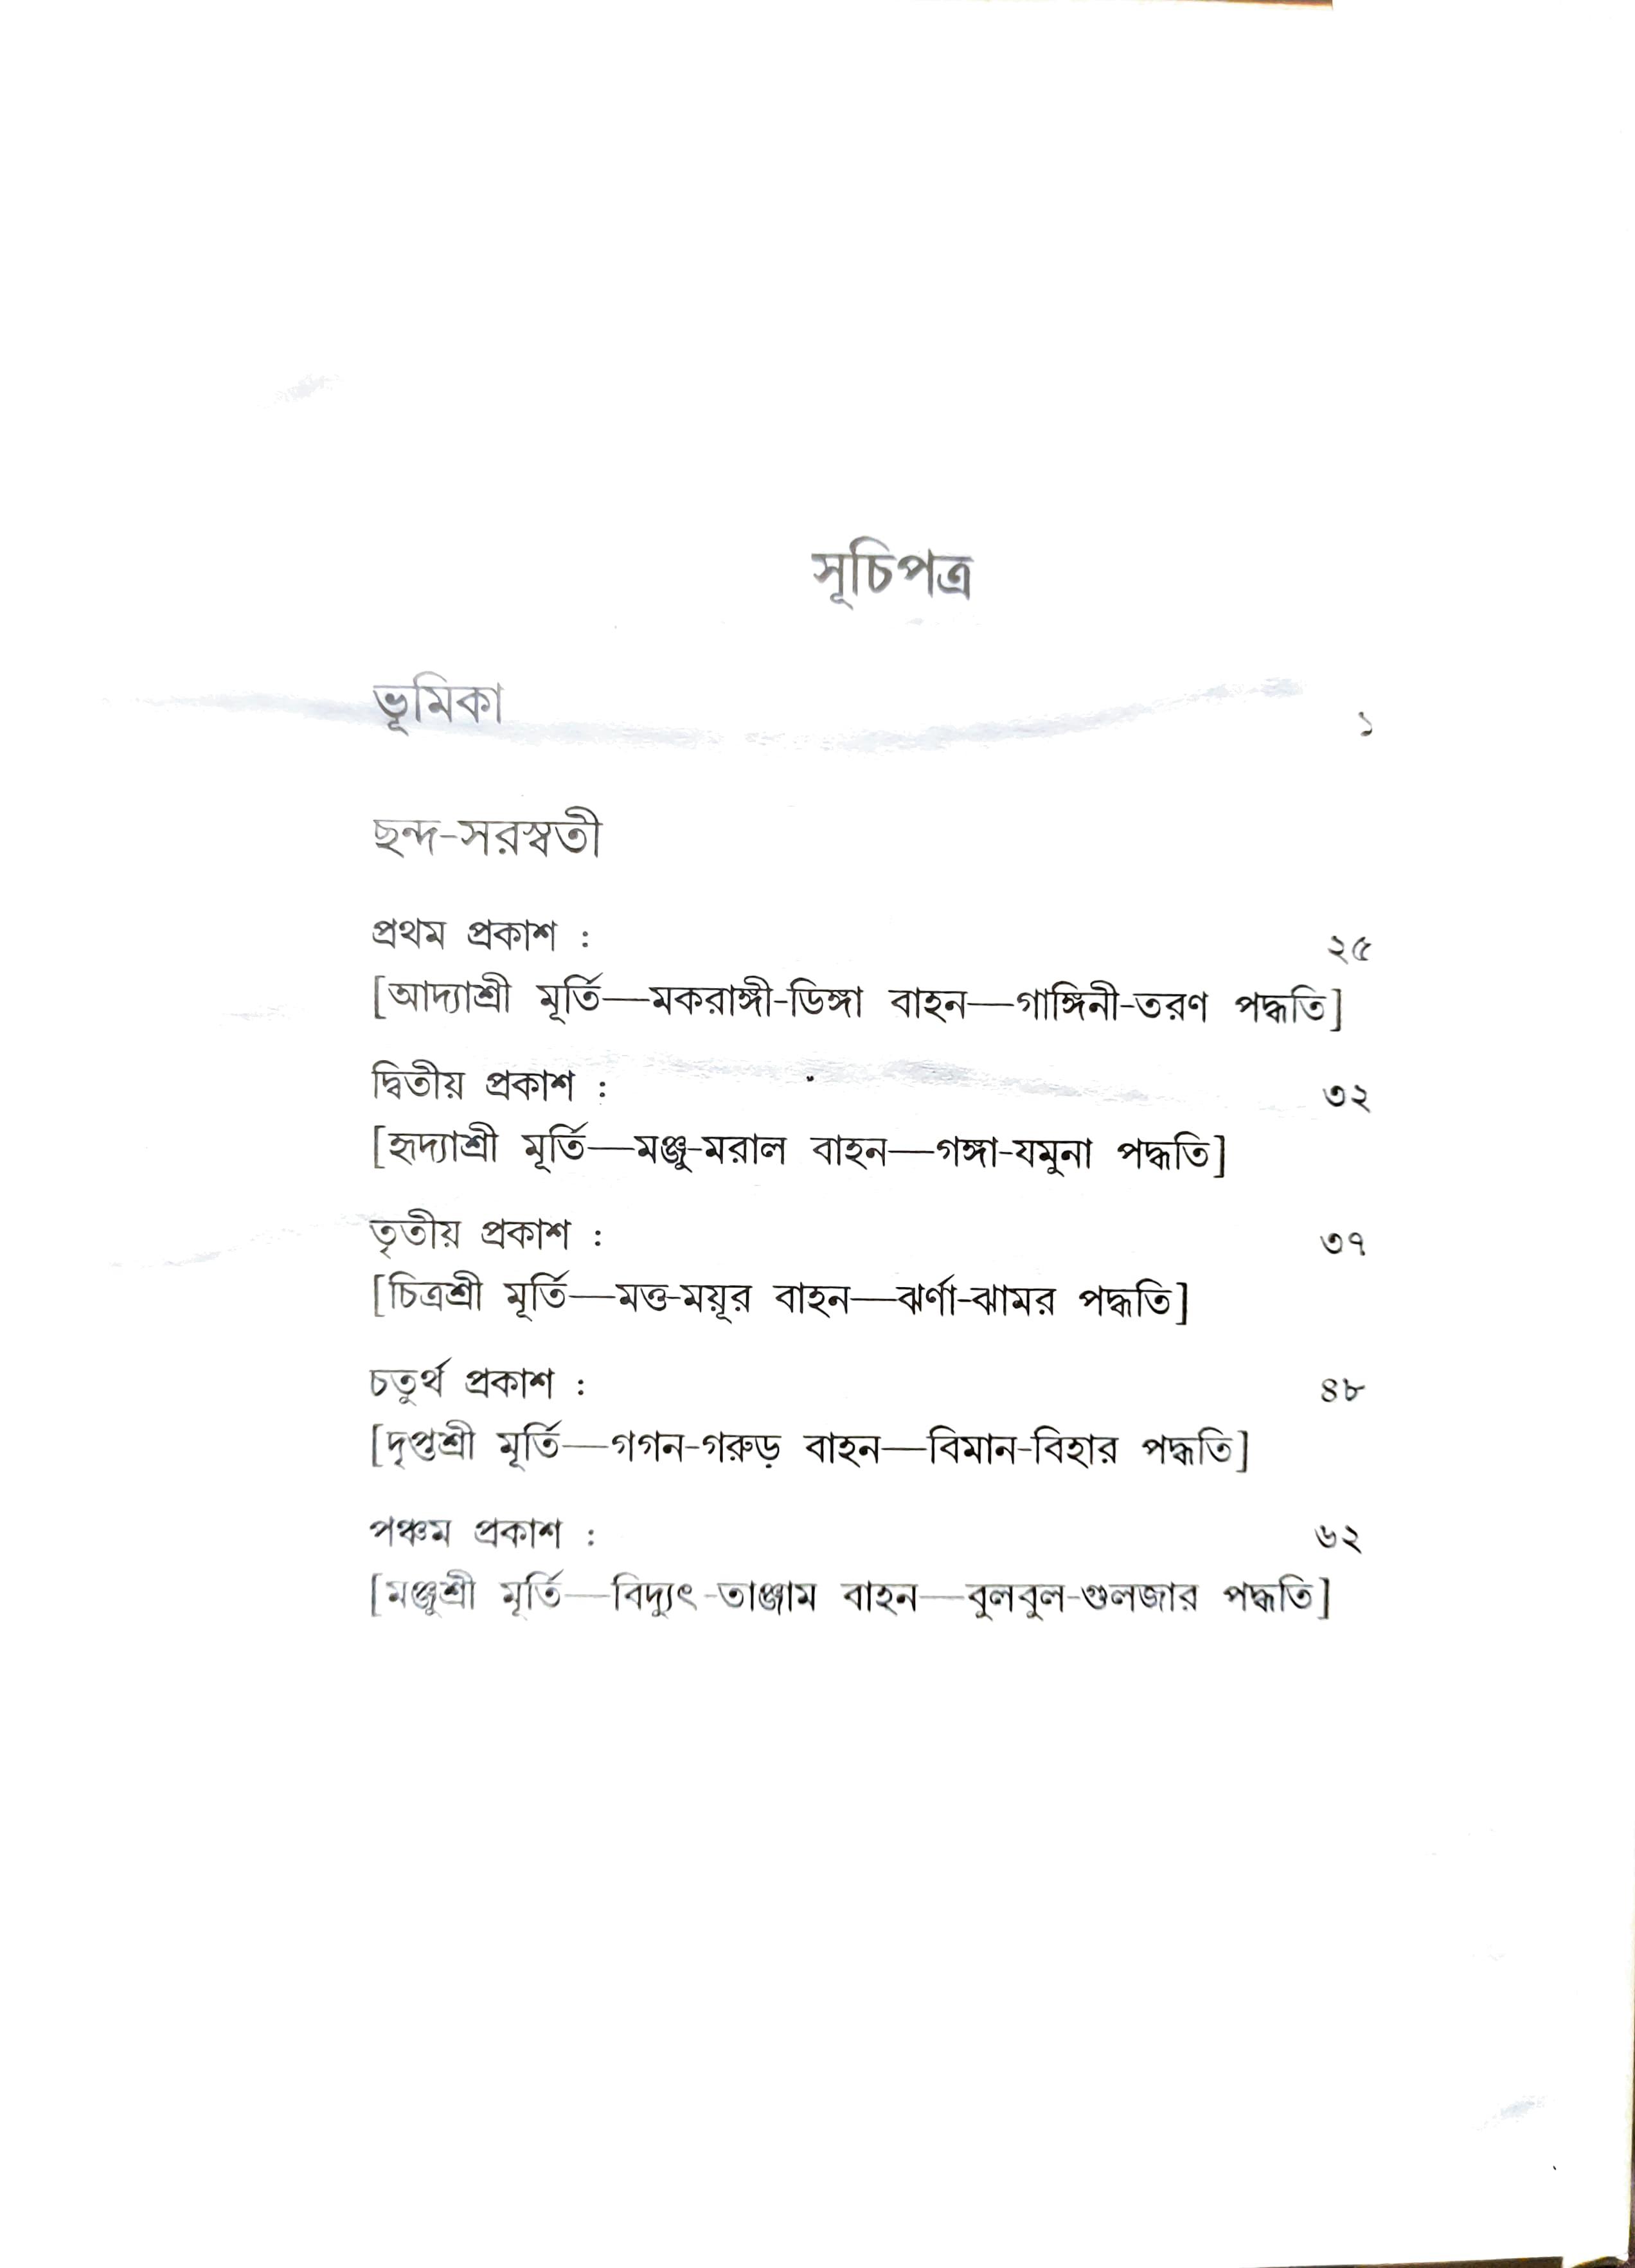 সূচিপত্র
ভূমিকা ১
ছন্দ-সরস্বতী
প্রথম প্রকাশ : ২৫
[আদ্যাশ্রী মূর্তি—মকরাঙ্গী-ডিঙ্গা বাহন—গাঙ্গিনী-তরণ পদ্ধতি]
দ্বিতীয় প্রকাশ : ৩২
[হৃদ্যাশ্রী মূর্তি—মঞ্জু-মরাল বাহন—গঙ্গা-যমুনা পদ্ধতি]
তৃতীয় প্রকাশ : ৩৭
[চিত্রশ্রী মূর্তি—মত্ত-ময়ূর বাহন—ঝর্ণা-ঝামর পদ্ধতি]
চতুর্থ প্রকাশ : ৪৮
[দৃপ্তশ্রী মূর্তি—গগন-গরুড় বাহন—বিমান-বিহার পদ্ধতি]
পঞ্চম প্রকাশ : ৬২
[মঞ্জুশ্রী মূর্তি—বিদ্যুৎ-তাঞ্জাম বাহন—বুলবুল-গুলজার পদ্ধতি]